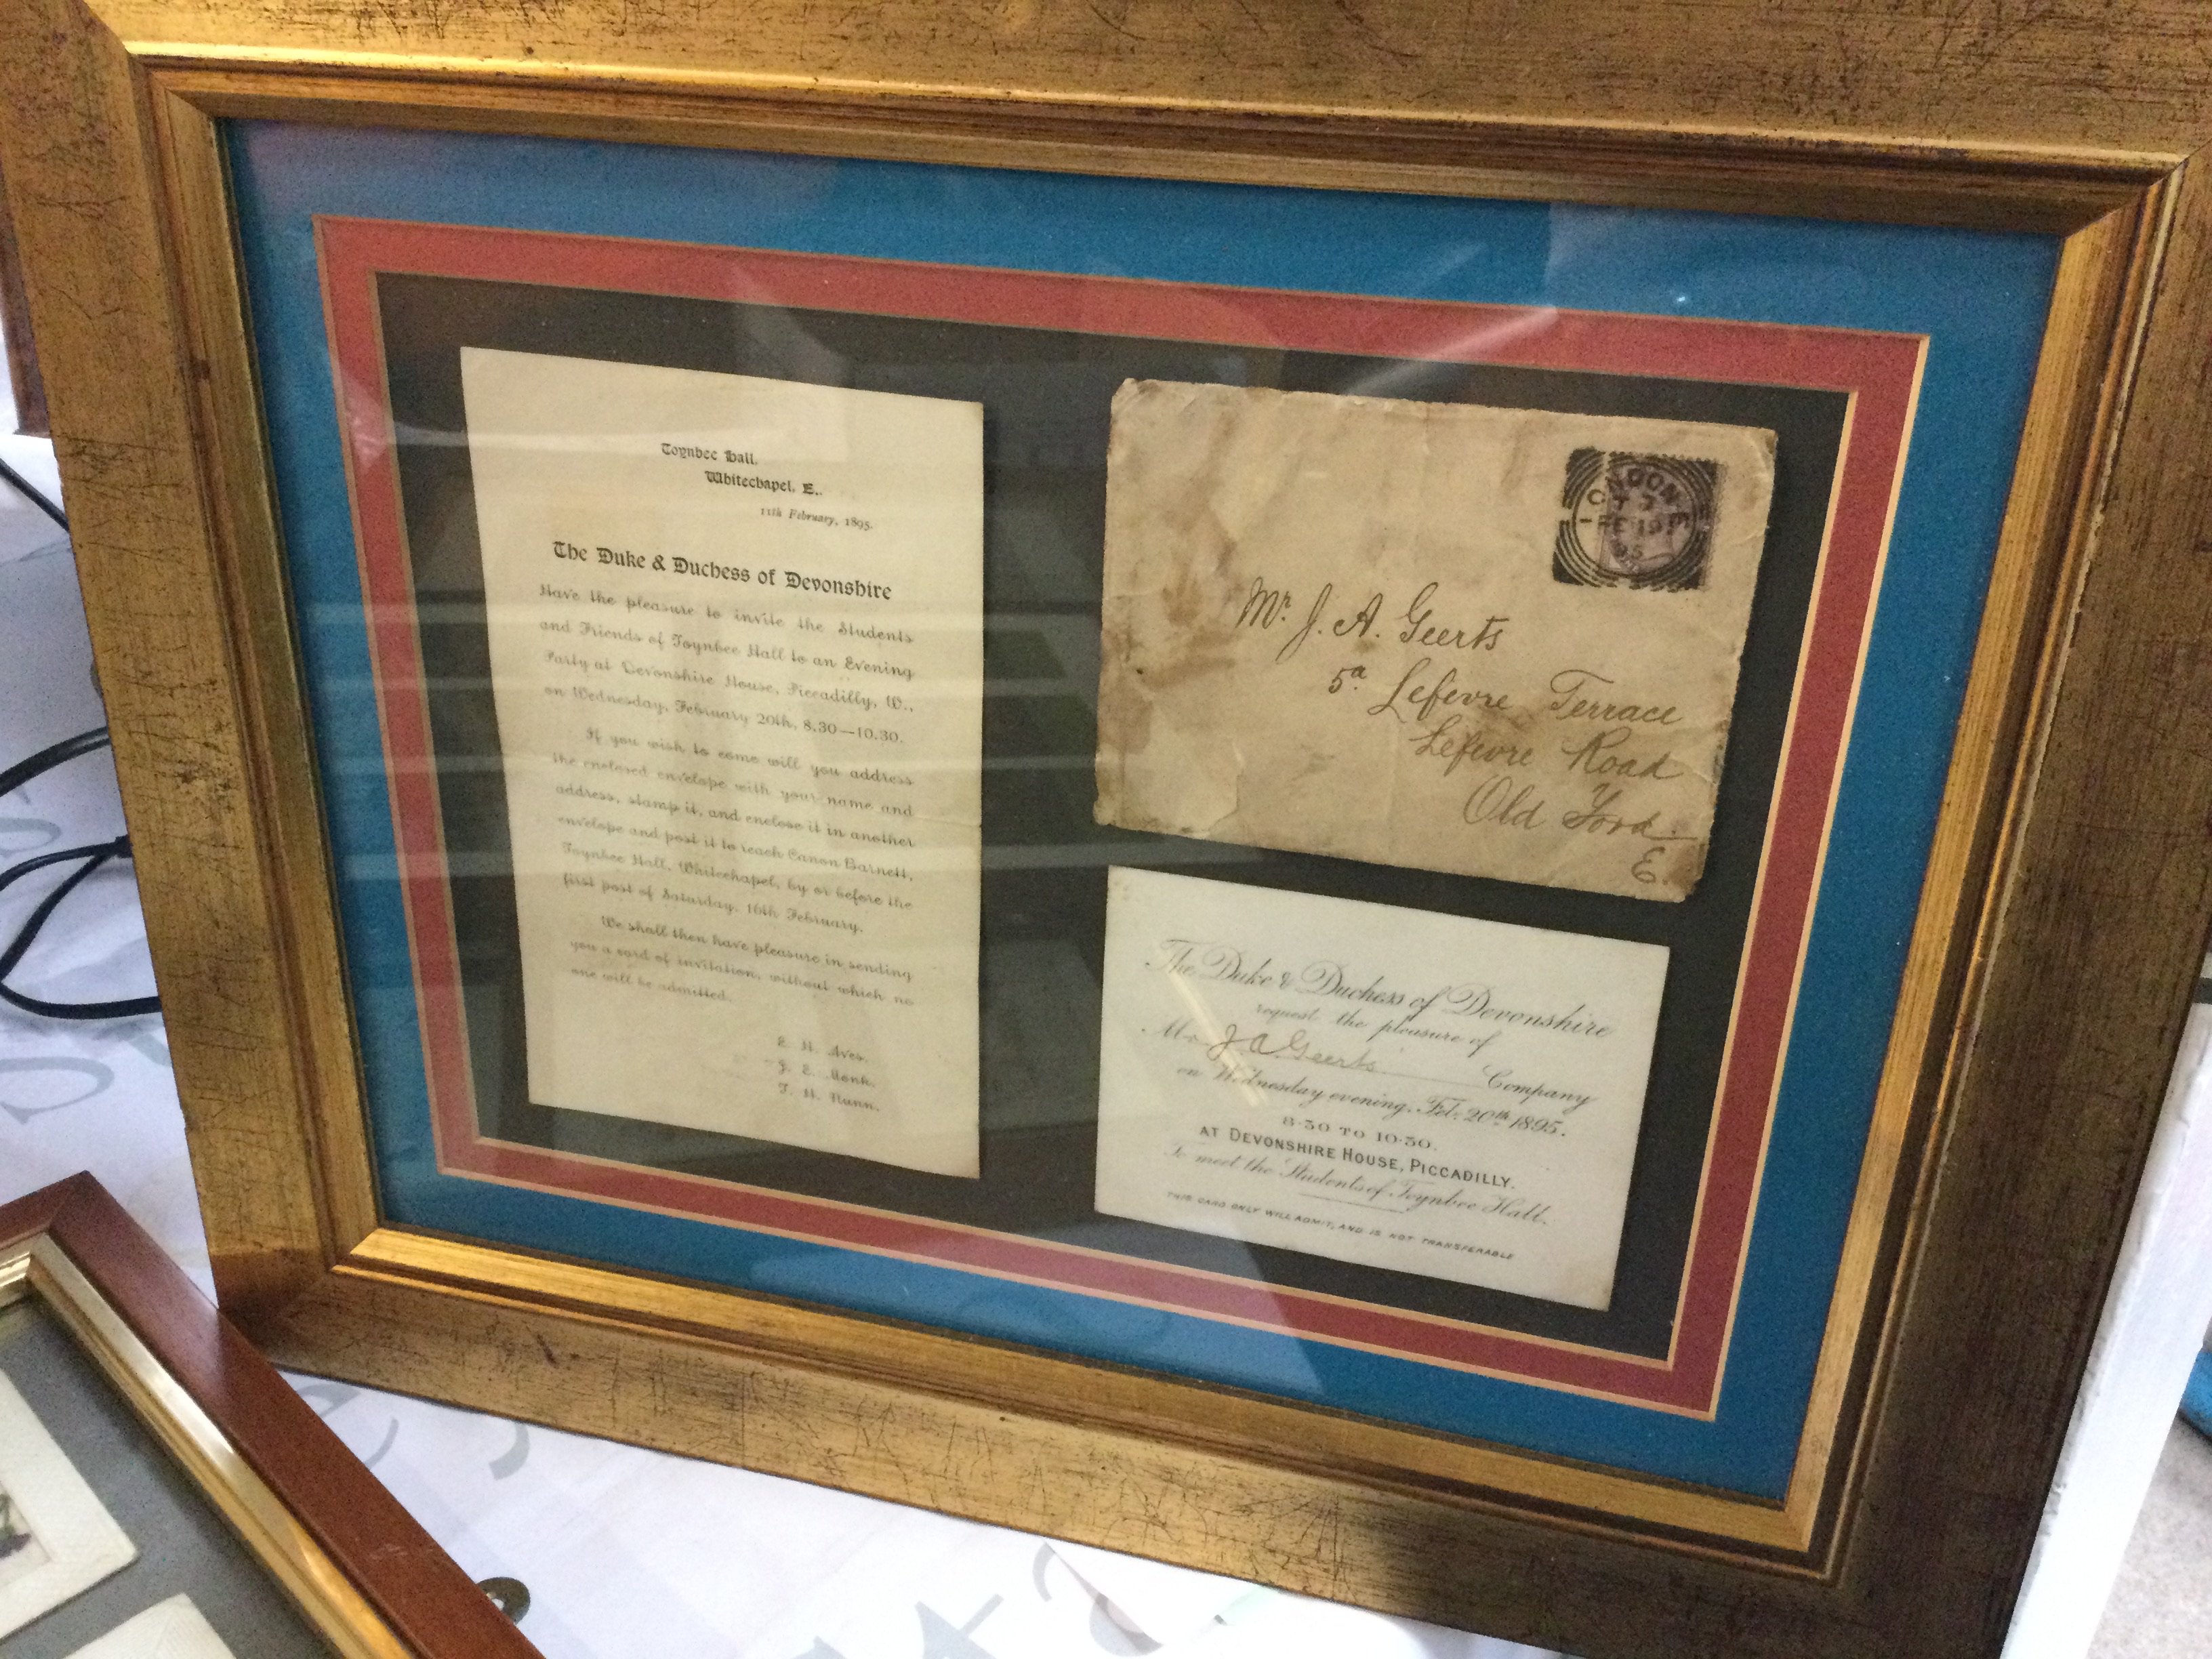 Toynbee Hall,
Whitechapel, E.,
11th February, 1895.
The Duke & Duchess of Devonshire
Have the pleasure to invite the Students
and Friends of Toynbee Hall to an Evening
Party at Devonshire House, Piccadilly, W.,
on Wednesday, February 20th, 8.30—10.30.
If you wish to come will you address
the enclosed envelope with your name and
address, stamp it, and enclose it in another
envelope and post it to reach Canon Barnett,
Toynbee Hall, Whitechapel, by or before the
first post of Saturday, 16th February.
We shall then have pleasure in sending
you a card of invitation, without which no
one will be admitted.
E. H. Aves.
J. E. Monk.
T. H. Nunn.
LONDON. E
FE 19
95
Mr. J. A. Geerts
5a Lefevre Terrace
Lefevre Road
Old Ford.
E.
The Duke & Duchess of Devonshire
request the pleasure of
Mr. J A Geerts Company
on Wednesday evening, Feb: 20th 1895.
8-30 TO 10-30.
AT DEVONSHIRE HOUSE, PICCADILLY.
To meet the Students of Toynbee Hall.
THIS CARD ONLY WILL ADMIT, AND IS NOT TRANSFERABLE